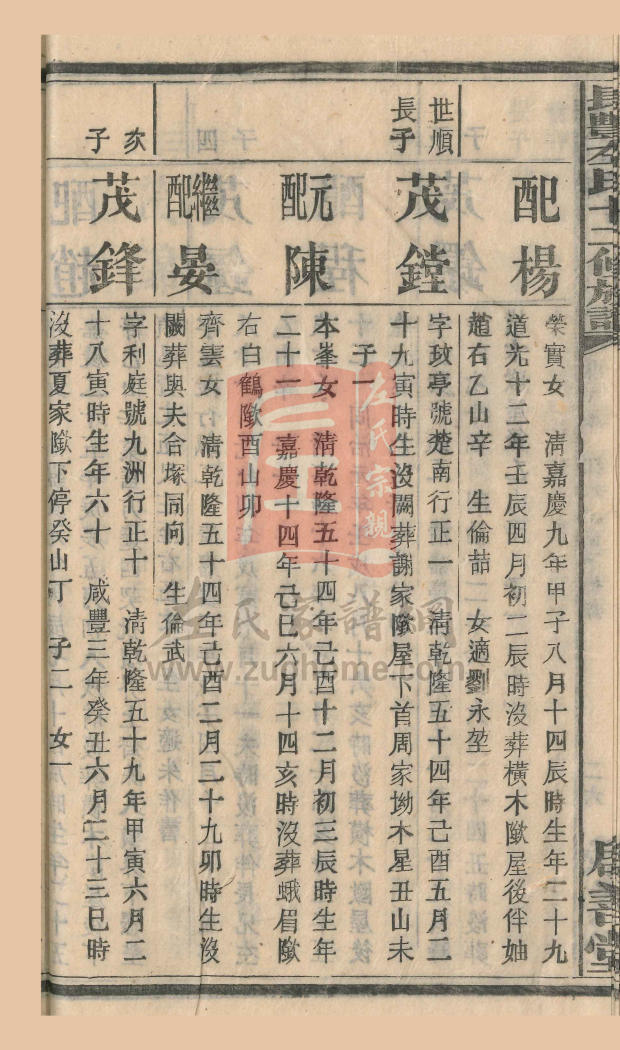 長豐左氏十二修族譜
配楊
榮實女 清嘉慶九年甲子八月十四辰時生年二十九
道光十二年壬辰四月初二辰時沒葬橫木歐屋後伴妯
趙右乙山辛 生倫喆 女適劉永堃
世順
長子
茂鏜
字政亭號楚南行正一 清乾隆五十四年己酉五月二
十九寅時生沒闕葬謝家歐屋下首周家坳木星丑山未
子一
元配陳
本峯女 清乾隆五十四年己酉十二月初三辰時生年
二十一 嘉慶十四年己巳六月十四亥時沒葬蛾眉歐
右白鶴歐酉山卯
繼配晏
齊雲女 清乾隆五十四年己酉二月二十九卯時生沒
闕葬與夫合塚同向 生倫武
次
子
茂鋒
字利庭號九洲行正十 清乾隆五十九年甲寅六月二
十八寅時生年六十 咸豐三年癸丑六月二十三巳時
沒葬夏家歐下停癸山丁 子二 女一
左氏宗親
三王
左氏家譜網
www.zuqhome.com